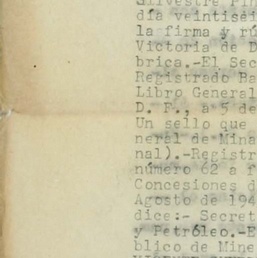 Silvestre Pin
día veintiséi
la firma y rú
Victoria de D
brica.-El Sec
Registrado Ba
Libro General
D. F., a 5 de
Un sello que
neral de Mina
nal).-Registr
número 62 a f
Concesiones d
Agosto de 194
dice:- Secret
y Petróleo.-E
blico de Mine